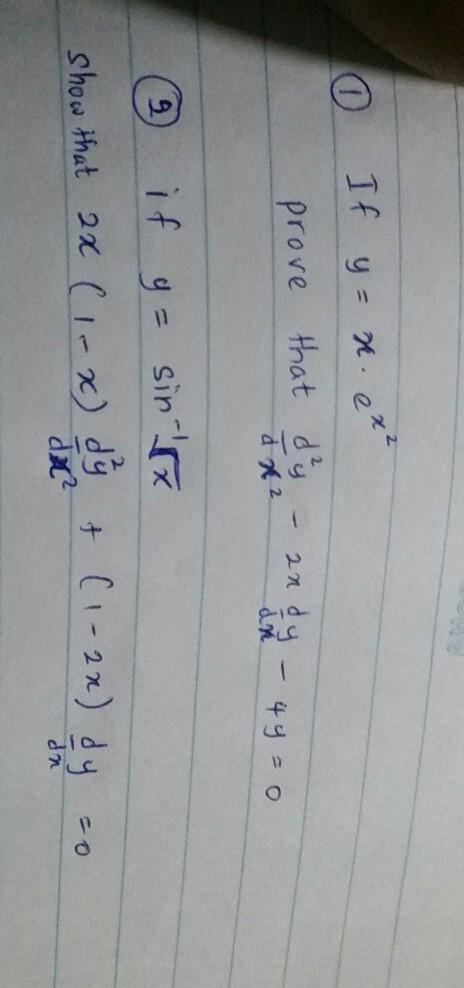 ① If y = x · e^{x^2}
prove that d²y/dx² - 2x dy/dx - 4y = 0
② if y = sin⁻¹√x
show that 2x (1-x) d²y/dx² + (1-2x) dy/dx = 0